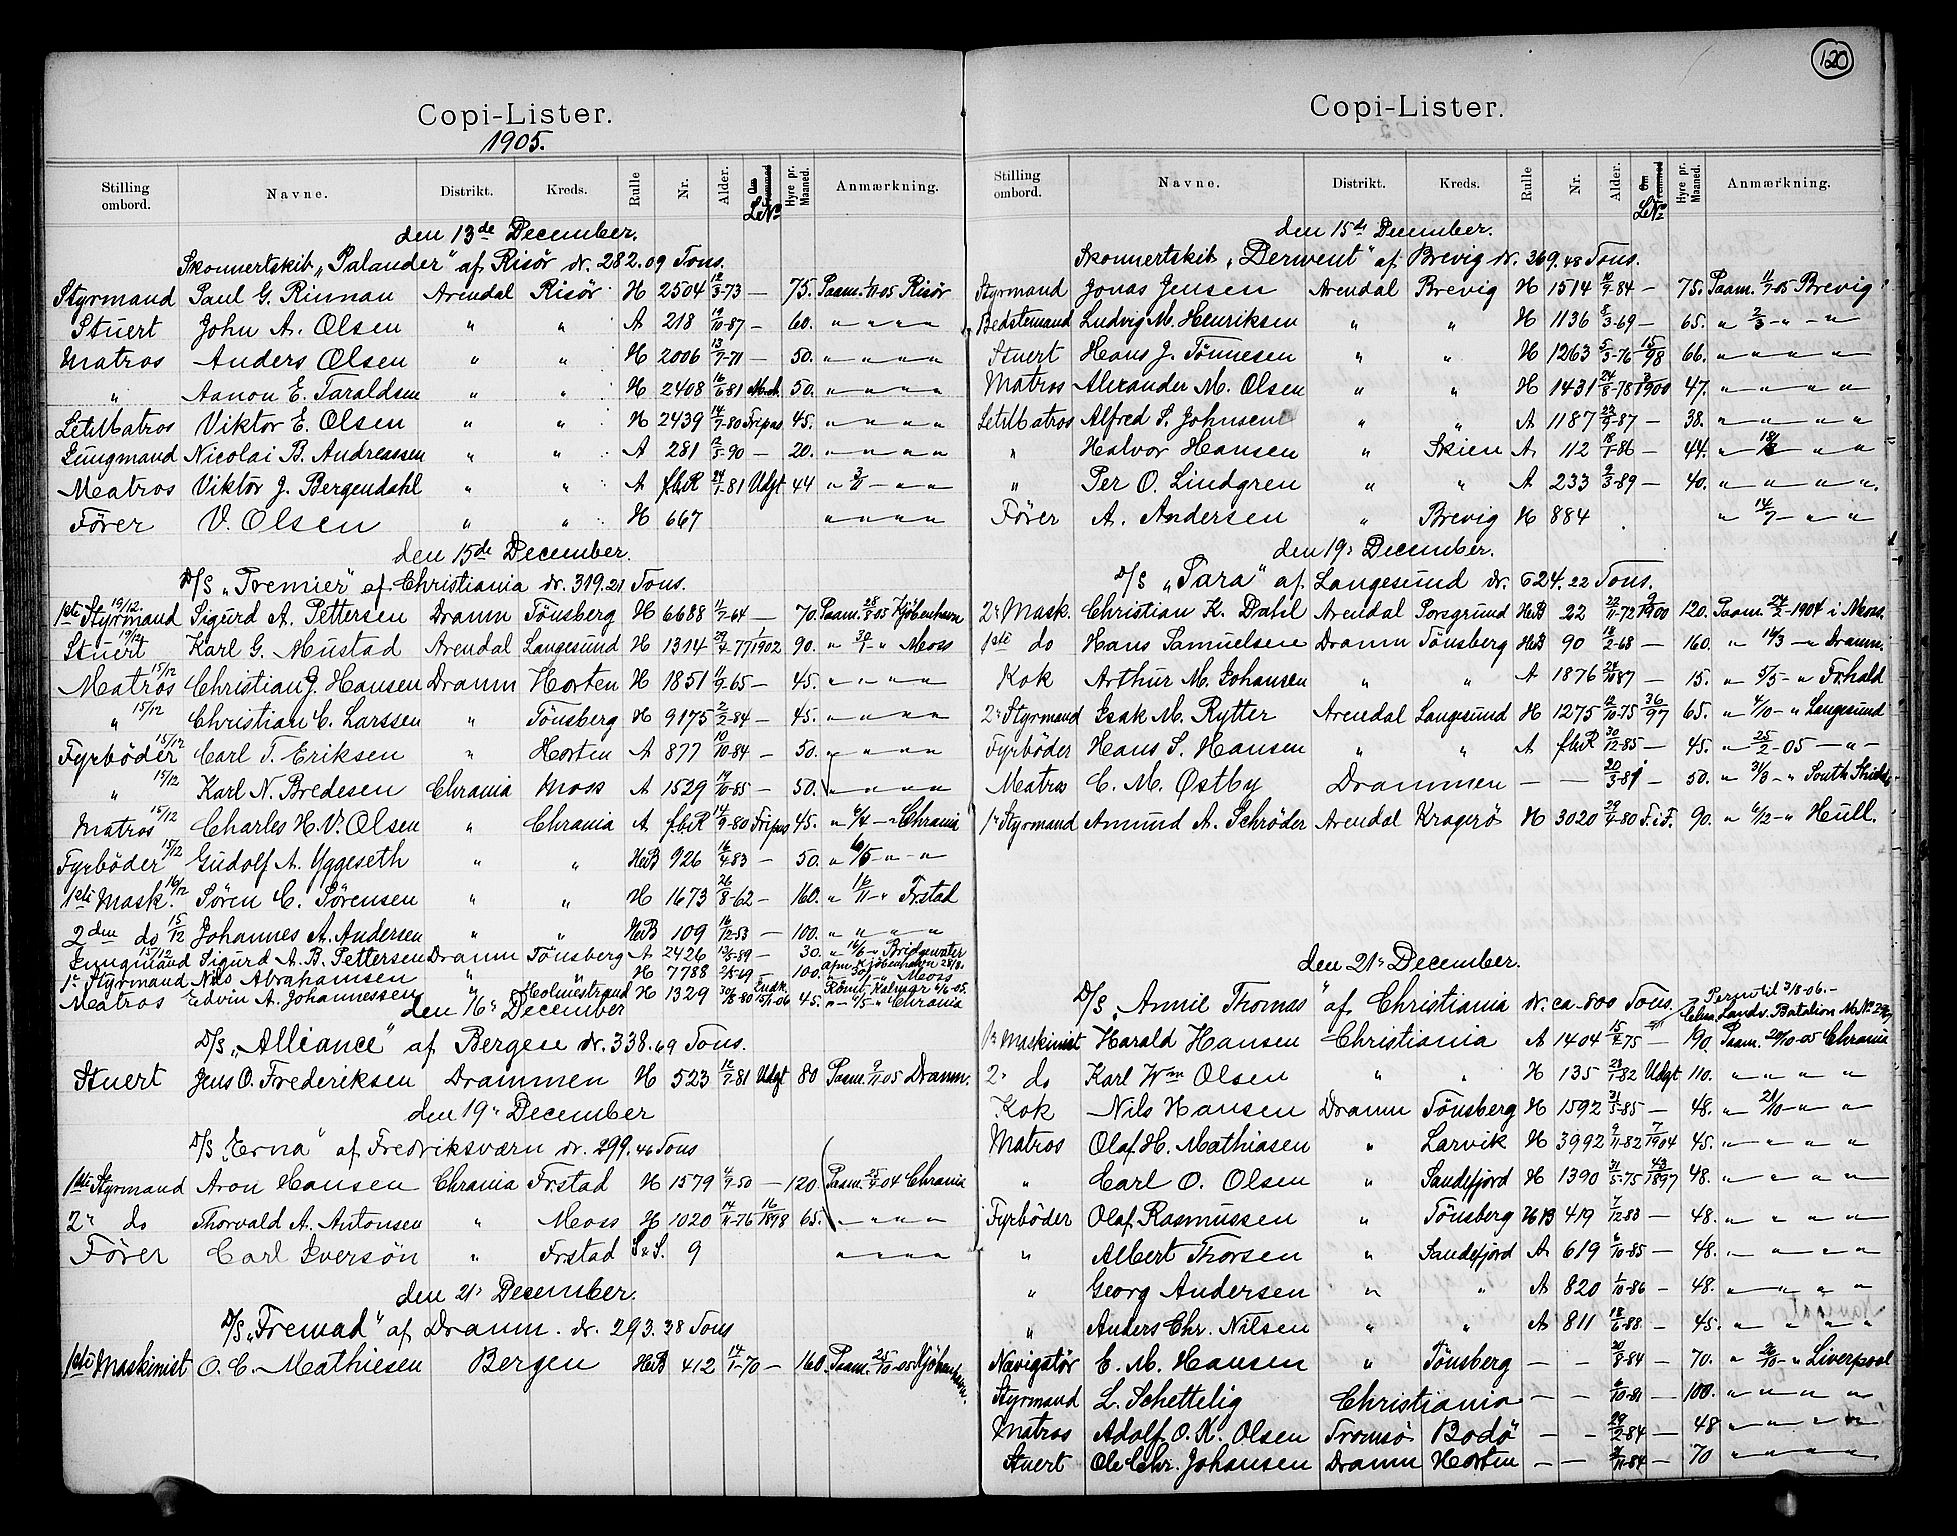 120
Copi-Lister.
1905.
Stilling ombord. Navne. Distrikt. Kreds. Rulle Nr. Alder. Om fremmed Le No Hyre pr. Maaned. Anmærkning.
den 13de December.
Skonnertskib „Palander" af Risör dr. 282.09 Tons.
Styrmand Paul G. Rinnan Arendal Risör H 2504 12/3-73 — 75. Paam. 4/11 05 Risör
Stuert John A. Olsen " " A 218 19/10-87 — 60. " " " "
Matros Anders Olsen " " H 2006 13/7-71 — 50. " " " "
" Aanon E. Taraldsen " " H 2408 16/6 81 50. " " " "
LetMatros Viktor E. Olsen " " H 2439 14/7-80 Fripas 45. " " " "
Jungmand Nicolai B. Andreassen " " A 281 12/5-90 — 20. " " " "
Matros Viktor J. Bergendahl " " A f.b.R 24/1-81 Udgt 44 " 3/11 - " "
Förer V. Olsen " " H 667 " " " "
den 15de December.
D/S „Premier" af Christiania dr. 319.21 Tons.
1ste Styrmand 19/12. Sigurd A. Pettersen Dramn Tönsberg H 6688 11/2-64 — 70. Paam. 28/8 05 Kjöbenhavn
Stuert 19/12 Karl G. Mustad Arendal Langesund H 1314 29/4-77 1/1902 90. " 30/7 - " Moss
Matros 15/12 Christian J. Hansen Dramn Horten H 1851 11/9-65 — 45. " " " "
" 15/12 Christian C. Larssen " Tönsberg H 9175 2/2-84 — 45. " " " "
Fyrböder 15/12 Carl T. Eriksen " Horten A 877 10/10-84 — 50. " " " "
" 15/12 Karl N. Bredesen Chrania Moss A 1529 19/10-85 — 50. " " " "
Matros 15/12 Charles H. V. Olsen " Chrania A f.b.R 14/9-80 Fripas 45. " 6/4 - " Chrania
Fyrböder 15/12 Gudolf A. Yggeseth " " HiB 926 16/4-83 — 50. " 6/5 - " "
1ste Mask. 16/12 Sören C. Sörensen " " H 1673 26/8-62 — 160. " 16/11 - " Frstad
2den do 15/12 Johannes A. Andersen " " HiB 109 16/12-53 — 100. " " " "
Jungmand 15/12 Sigurd A. B. Pettersen Dramn Tönsberg A 2426 13/5-89 — 30. " 16/6 - " Bridgewater
1ste Styrmand Nils Abrahamsen " " H 7788 2/5-69 — 100. Afm. Kjöbenhavn 28/8. " 30/7 - " Moss
Matros Edvin A. Johannessen " Holmestrand H 1329 30/8-80 Indk. 15/1-06 45. Römt Kalmar 6/6-05. " - 6/5 - " Chrania
den 16" December
D/S „Alliance" af Bergen dr. 338.69 Tons.
Stuert Jens O. Frederiksen Drammen H 523 12/7-81 Udgt 80 Paam. 9/11 05 Dramn.
den 19" December
D/S „Erna" af Fredriksværn dr. 299.46 Tons
1ste Styrmand Aron Hansen Chrania Frstad H 1579 4/9-50 — 120. Paam. 25/7-04 Chrania
2" do Thorvald A. Antonsen " Moss H 1020 14/11-76 16/1898 65. " " " "
Förer Carl Iversön " Frstad S.S. 9 " " " "
den 21" December.
D/S „Fremad" af Dramn. dr. 293.38 Tons
1ste Maskinist O. C. Mathiesen Bergen HiB 412 14/1-70 — 160. Paam. 25/10-05 Kjöbenhavn.
Copi-Lister.
Stilling ombord. Navne. Distrikt. Kreds. Rulle Nr. Alder. Om fremmed Le No Hyre pr. Maaned. Anmærkning.
den 15de December.
Skonnertskib „Derwent" af Brevig dr. 369.48 Tons.
Styrmand Jonas Jensen Arendal Brevig H 1514 10/9-84 — 75. Paam. 11/7-05 Brevig
Bedstemand Ludvig M. Henriksen " " H 1136 8/3-69 — 65. " 2/3 - " - "
Stuert Hans J. Tönnesen " " H 1263 5/3-76 15/98 66. " " " "
Matros Alexander M. Olsen " " H 1431 24/8-78 3/1900 47. " " " "
LetMatros Alfred S. Johnsen " " A 1187 23/9-87 — 38. " " " "
" Halvor Hansen " Skien A 112 18/1-86 — 44. " " "
" Per O. Lindgren " " A 233 9/3-89 — 40. " " " "
Förer A. Andersen " Brevig H 884 " 14/7 - " "
den 19" December.
D/S „Tara" af Langesund dr. 624.22 Tons.
2" Mask. Christian K. Dahl Arendal Porsgrund HiB 22 22/11-72 9/1900 120. Paam. 24/2-1904 i Moss.
1ste do Hans Samuelsen Dramn Tönsberg HiB 90 18/2-68 — 160. " 16/3 - " Dramn.
Kok Arthur M. Johansen " " A 1876 24/11 87 — 15. " 5/5 - " Frhald
2" Styrmand Isak M. Rytter Arendal Langesund H 1275 12/10-75 36/97 65. " 4/10 - " Langesund
Fyrböder Hans S. Hansen " " A f.b.R 30/12-85 — 45. " 25/2-05 - " -
Matros C. M. Østby Drammen — — 20/3-81 — 50. " 31/3 - " South Shields
1" Styrmand Amund A. Schröder Arendal Kragerö H 3020 29/4-80 F.i.F. 90. " 6/12 - " Hull.
den 21" December.
D/S „Annie Thomas" af Christiania dr. ca. 800 Tons. Perm til 3/8-06. - Chra. Landv. Batalion
1" Maskinist Harald Hansen Christiania A 1404 15/2-75 — 190. Paam. 20/10-05 Chrania
2" do Karl Wm Olsen " " H 135 23/1-82 Udgt 110. " " " "
Kok Nils Hansen Dramn Tönsberg H 1592 31/5-85 — 48. " 21/10 - " "
Matros Olaf H. Mathiasen " Larvik H 3992 9/11-82 7/1904 45. " " " "
" Carl O. Olsen " Sandefjord H 1390 31/5-75 43/1897 48. " " " "
Fyrböder Olaf Rasmussen " Tönsberg HiB 419 7/12-83 — 48. " " " "
" Albert Thorsen " Sandefjord A 619 6/10-85 — 48. " " " "
" Georg Andersen " " A 820 1/10-86 — 48. " " " "
" Anders Chr. Nilsen " " A 811 18/6-88 — 45. " " " "
Navigatör C. M. Hansen " Tönsberg — — 20/8-84 — 70. " 26/10 - " Liverpool
Styrmand L. Schettelig Christiania — — 6/10-81 — 100. " " " "
Matros Adolf O. K. Olsen Tromsö Bodö — — 29/2-84 — 48 " " " "
Stuert Ole Chr. Johansen Dramn Horten — — 2/11-84 — 70 " " " "